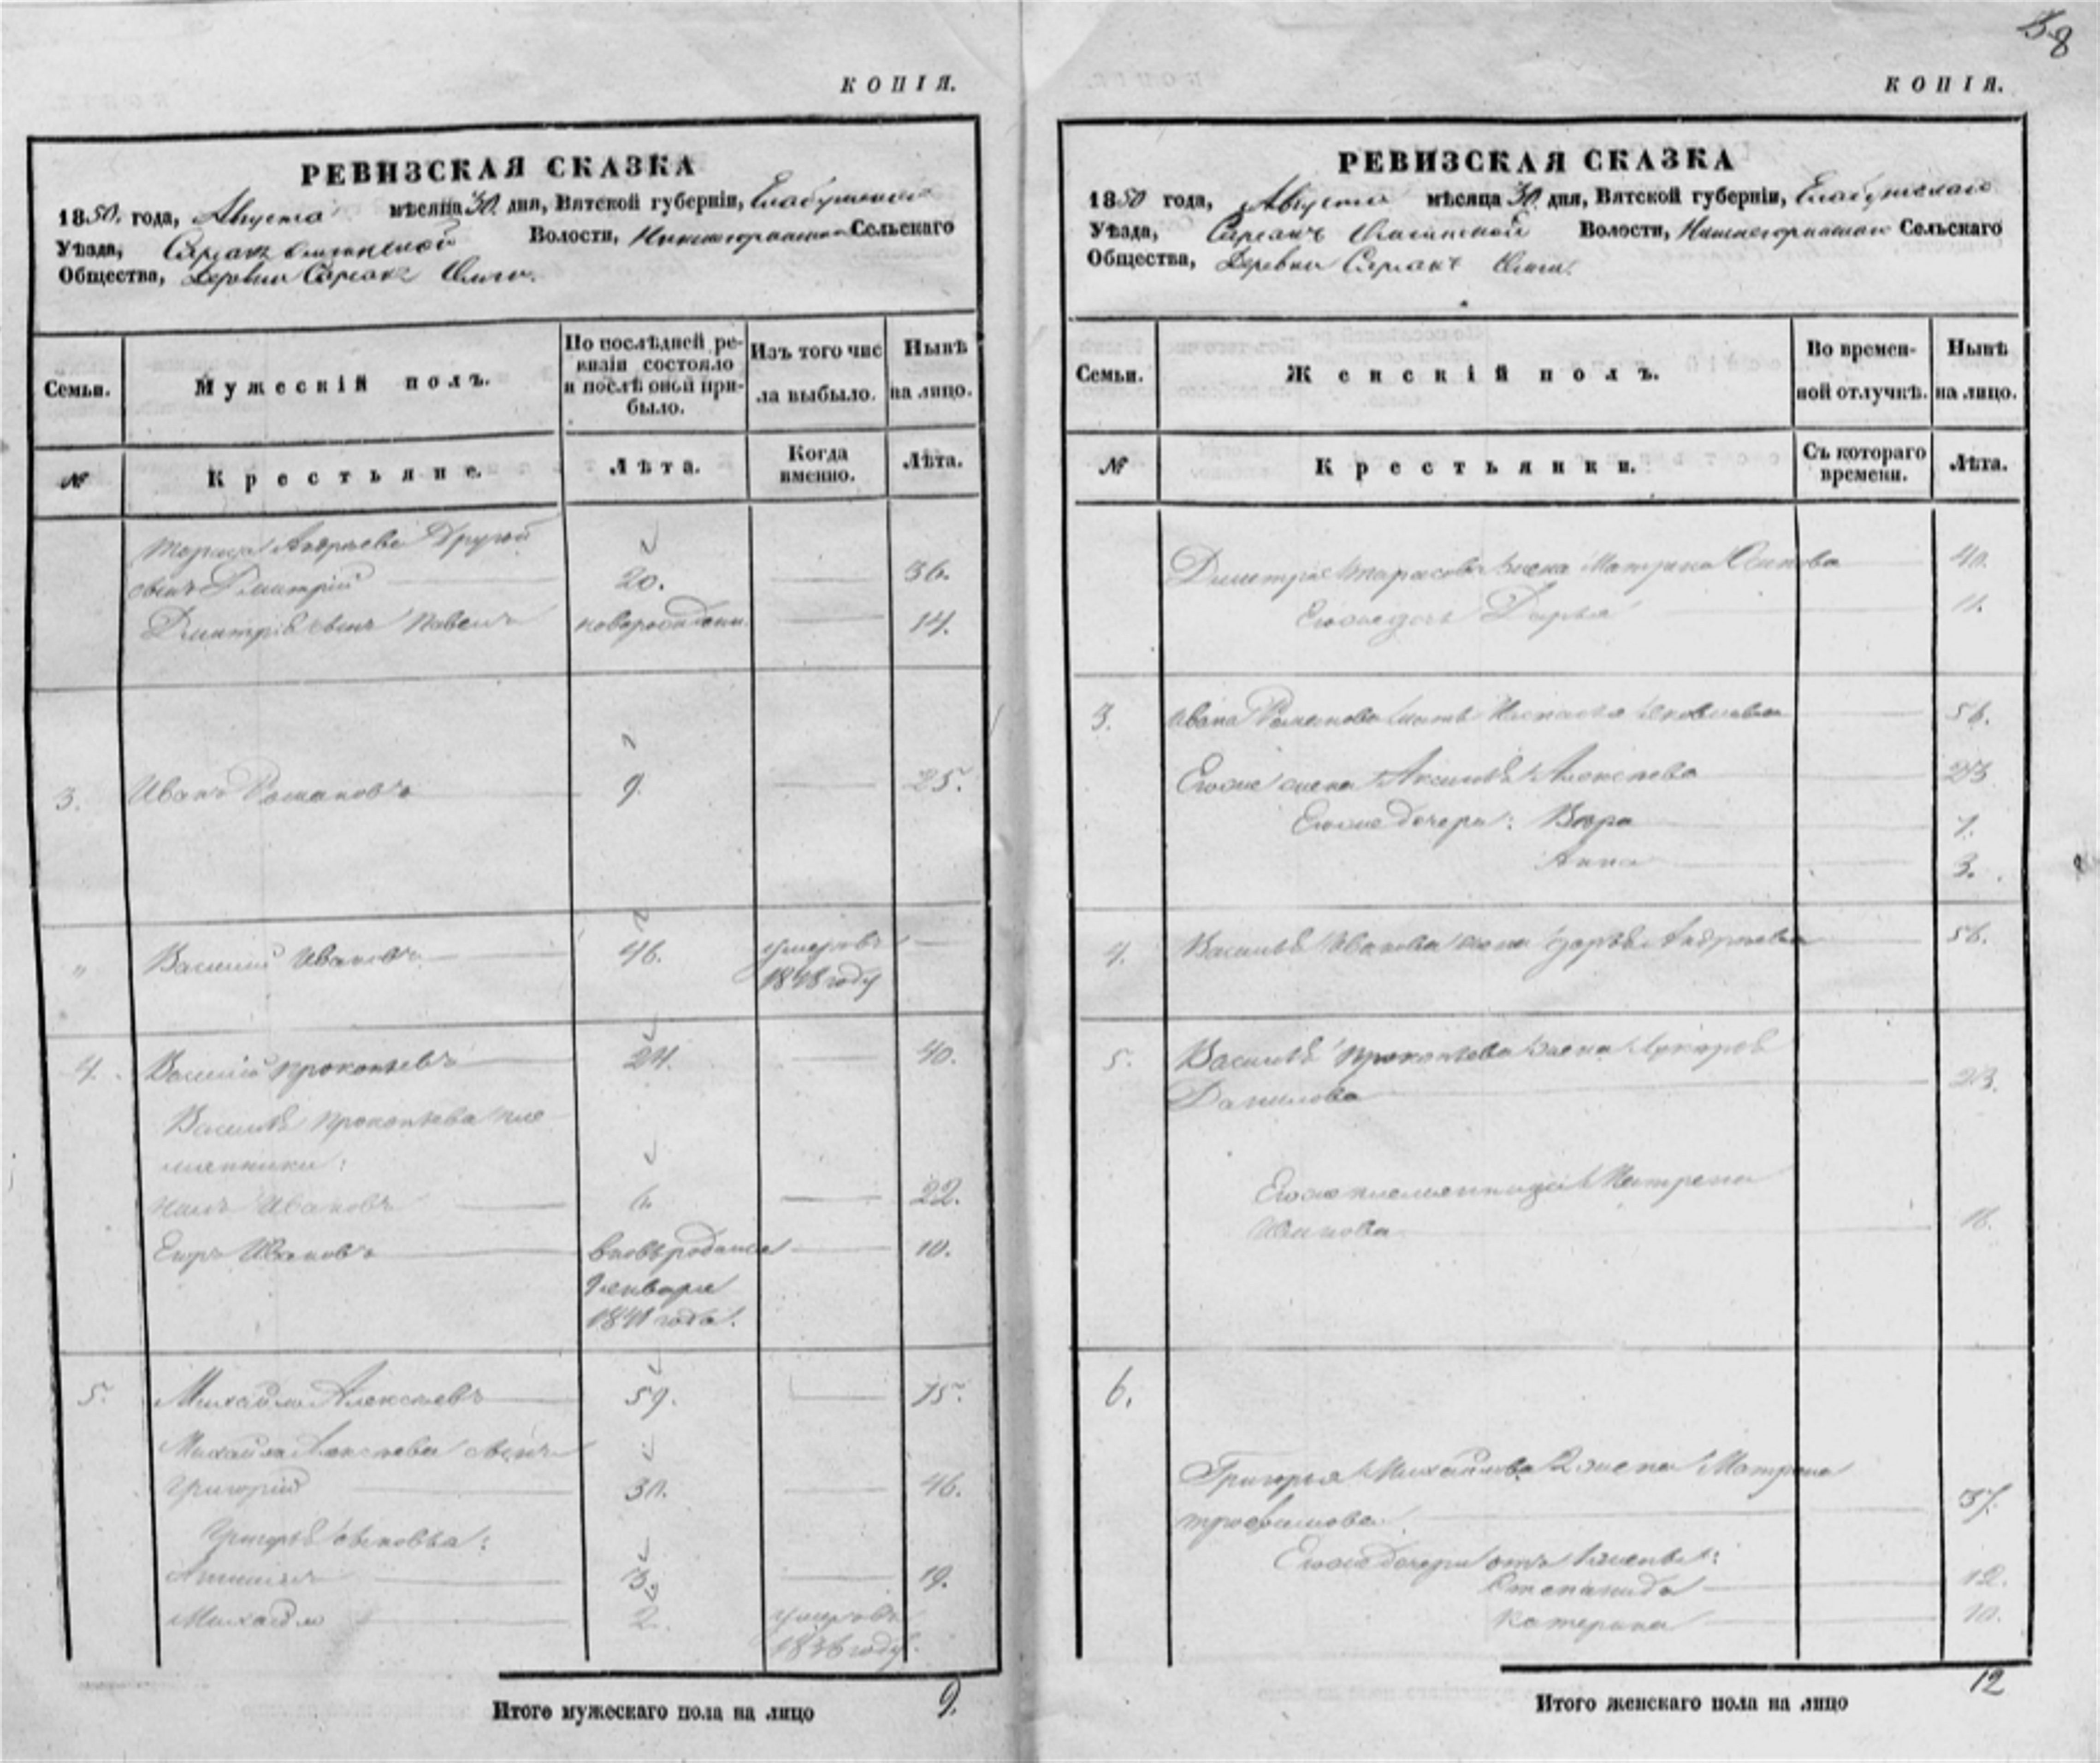 КОПІЯ.
РЕВИЗСКАЯ СКАЗКА
1850. года, Августа мѣсяца 30. дня, Вятской губерніи, Елабужскаго
Уѣзда, Волости, Сельскаго
Общества, Деревни Сарсакъ Омги.
Семьи. Мужескій полъ. По послѣдней ревизіи состояло и послѣ оной прибыло. Изъ того числа выбыло. Нынѣ на лицо.
№ Крестьяне. Лѣта. Когда именно. Лѣта.
Тараса Андреева Другой
сынъ Дмитрій 20. 36.
Дмитрія сынъ Павелъ новорожден. 14.
3. Иванъ Романовъ 9. 25.
" Василій Ивановъ 46. умеръ въ
1848 году
4. Василій Прокопьевъ 24. 40.
Василья Прокопьева пле
мянники:
Ивановъ 6. 22.
Егоръ Ивановъ вновь родился 10.
Генваря
1841 года.
5. Михайло Алексѣевъ 59. 75.
Михайла Алексѣева сынъ
Григорій 30. 46.
Григорья сыновья:
3. 19.
Михайло 2. умеръ въ
1836 году.
Итого мужескаго пола на лицо 9.
КОПІЯ.
РЕВИЗСКАЯ СКАЗКА
1850 года, Августа мѣсяца 30. дня, Вятской губерніи, Елабужскаго
Уѣзда, Волости, Сельскаго
Общества, Деревни Сарсакъ Омги.
Семьи. Женскій полъ. Во временной отлучкѣ. Нынѣ на лицо.
№ Крестьянки. Съ котораго времени. Лѣта.
Дмитрія Тарасова жена Матрена Осипова 40.
Его же дочь Дарья 11.
3. Ивана Романова мать Настасья Яковлева 56.
Его же жена Аксинья Алексѣева 23
Его же дочери: Вѣра 7.
Анна 3.
4. Василья Иванова жена Дарья Андреева 56.
5. Василья Прокопьева жена Лукерья
Данилова 23.
Его же племянница Матрена
Иванова 18.
6.
Григорья Михайлова 2 жена Матрена
Трофимова 37.
Его же дочери отъ 1 жены:
Степанида 12.
Катерина 10.
Итого женскаго пола на лицо 12